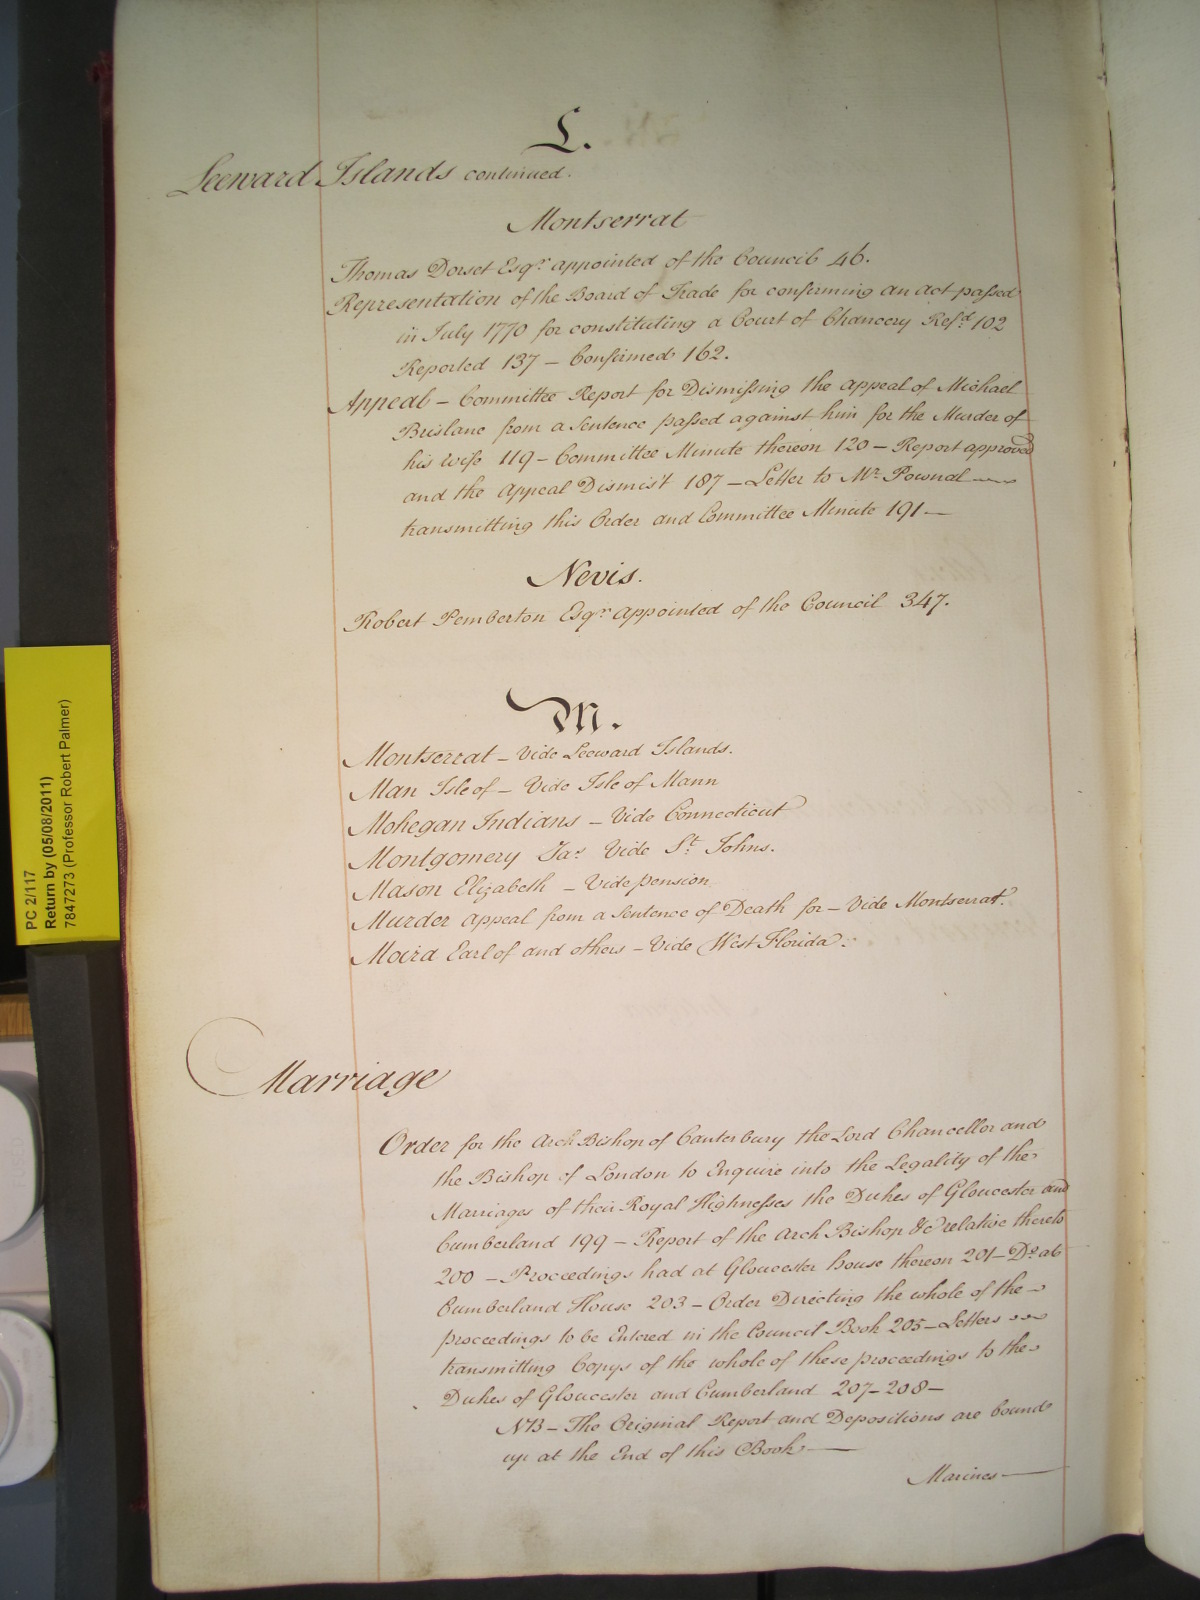 L.
Leeward Islands continued.
Montserrat
Thomas Dorset Esqr. appointed of the Council 46.
Representation of the Board of Trade for confirming an act passed
in July 1770 for constituting a Court of Chancery Refd. 102
Reported 137 – Confirmed 162.
Appeal – Committee Report for Dismissing the appeal of Michael
Brislane from a Sentence passed against him for the Murder of
his Wife 119 – Committee Minute thereon 120 – Report approved
and the Appeal Dismis't 187 – Letter to Mr. Pownal
transmitting this Order and Committee Minute 191 –
Nevis.
Robert Pemberton Esqr. appointed of the Council 347.
M.
Montserrat – Vide Leeward Islands.
Man Isle of – Vide Isle of Mann
Mohegan Indians – Vide Connecticut
Montgomery Jas. Vide St. Johns.
Mason Elizabeth – Vide pension
Murder appeal from a Sentence of Death for – Vide Montserrat.
Moira Earl of and others – Vide West Florida
Marriage
Order for the Arch Bishop of Canterbury the Lord Chancellor and
the Bishop of London to Enquire into the Legality of the
Marriages of their Royal Highnesses the Dukes of Gloucester and
Cumberland 199 – Report of the Arch Bishop &c relative thereto
200 – Proceedings had at Gloucester house thereon 201 – Do. at
Cumberland House 203 – Order Directing the whole of the
proceedings to be Entered in the Council Book 205 – Letters
transmitting Copys of the whole of these proceedings to the
Dukes of Gloucester and Cumberland 207 – 208 –
NB – The Original Report and Depositions are bound
up at the End of this Book –
Marines –
PC 2/117
Return by (05/08/2011)
7847273 (Professor Robert Palmer)